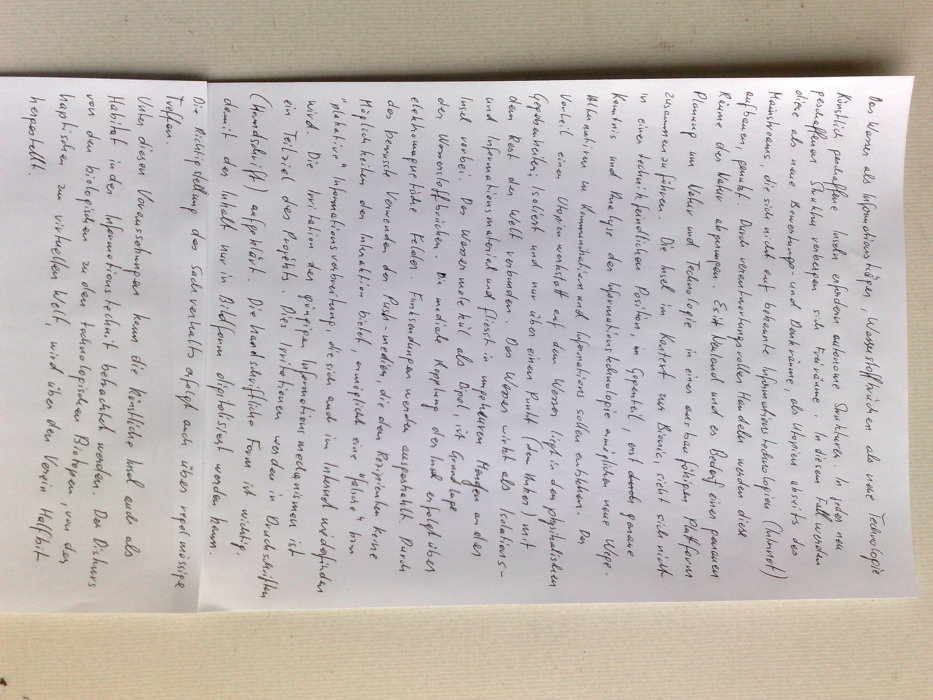 Das Wasser als Informationsträger, Wasserstoffbrücken als neue Technologie
Künstlich geschaffene Inseln erfodern autonome Strukturen. In jeder neu
geschaffenen Struktur verbergen sich Freiräume. In diesem Fall werden
diese als neue Bewertungs- und Denkräume als Utopien abseits des
Mainstreams, die sich nicht auf bekannte Informationstechnologien (Internet)
aufbauen, genutzt. Durch verantwortungsvollen Handeln werden diese
Räume der Natur abgerungen. Es ist Neuland und es Bedarf einer genauen
Planung um Natur und Technologie in einer ausbaufähigen Plattform
zusammen zu führen. Die Insel im Kontext zur Bionic, sieht sich nicht
in einer technikfeindlichen Position, im Gegenteil, erst durch genaue
Kenntnis und Analyse der Informationstechnologie ermöglichen neue Wege.
Alternativen in Kommunikation und Informations sollen entstehen. Der
Vorteil einer Utopienwerkstatt auf dem Wasser liegt in den physikalischen
Gegebenheiten; Isoliert und nur über einen Punkt (dem Anker) mit
dem Rest der Welt verbunden. Das Wasser wirkt als Isolations-
und Informationsmaterial und fliesst in ungeheuren Mengen an der
Insel vorbei. Das Wassermolekül als Dipol, ist Grundlage
der Wasserstoffbrücken. Die mediale Kopplung der Insel erfolgt über
elektromagnetische Felder. Funksendungen werden ausgestrahlt. Durch
das bewusste Verwenden der Push-medien, die den Rezipienten keine
Möglichkeiten der Interaktion bietet, ermöglicht eine "falsche" bzw
"plakative" Informationsverbreitung, die sich auch im Internet wiederfinden
wird. Die Irritation der gängigen Informationsmechanismen ist
ein Teilziel des Projekts. Dies Irritationen werden in Druckschriften
(Handschrift) aufgeklärt. Die handschriftliche Form ist wichtig.
damit der Inhalt nur in Bildform digitalisiert werden kann.
Die Richtigstellung des Sachverhalts erfolgt auch über regelmässige
Treffen.
Unter diesen Voraussetzungen kann die künstliche Insel auch als
Habitat in der Informationstechnik betrachtet werden. Der Diskurs
von den biologischen zu den technologischen Biotopen, von der
haptischen zur virtuellen Welt, wird über den Verein Halfbit
hergestellt.